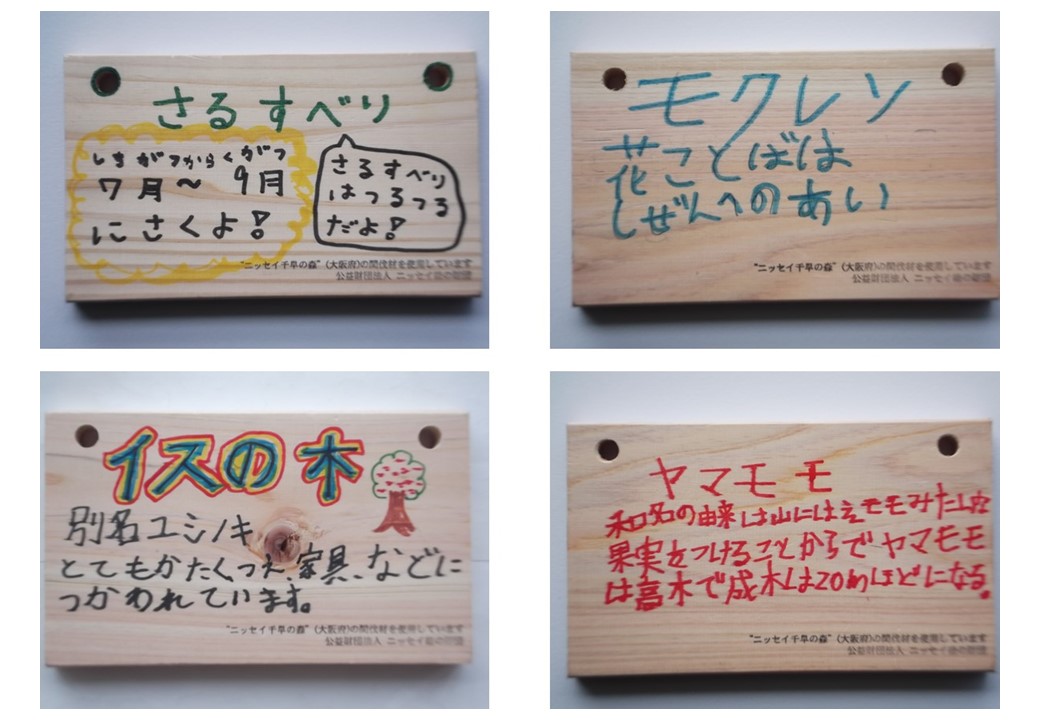 さるすべり
しちがつからくがつ
7月〜9月
にさくよ!
さるすべり
はつるつる
だよ!
"ニッセイ千早の森"(大阪府)の間伐材を使用しています
公益財団法人 ニッセイ緑の財団
モクレン
花ことばは
しぜんへのあい
"ニッセイ千早の森"(大阪府)の間伐材を使用しています
公益財団法人 ニッセイ緑の財団
イスの木
別名ユシノキ
とてもかたく、つえ、家具、などに
つかわれています。
"ニッセイ千早の森"(大阪府)の間伐材を使用しています
公益財団法人 ニッセイ緑の財団
ヤマモモ
和名の由来は山にはえモモみたいな
果実をつけることからでヤマモモ
は高木で成木は20mほどになる。
"ニッセイ千早の森"(大阪府)の間伐材を使用しています
公益財団法人 ニッセイ緑の財団